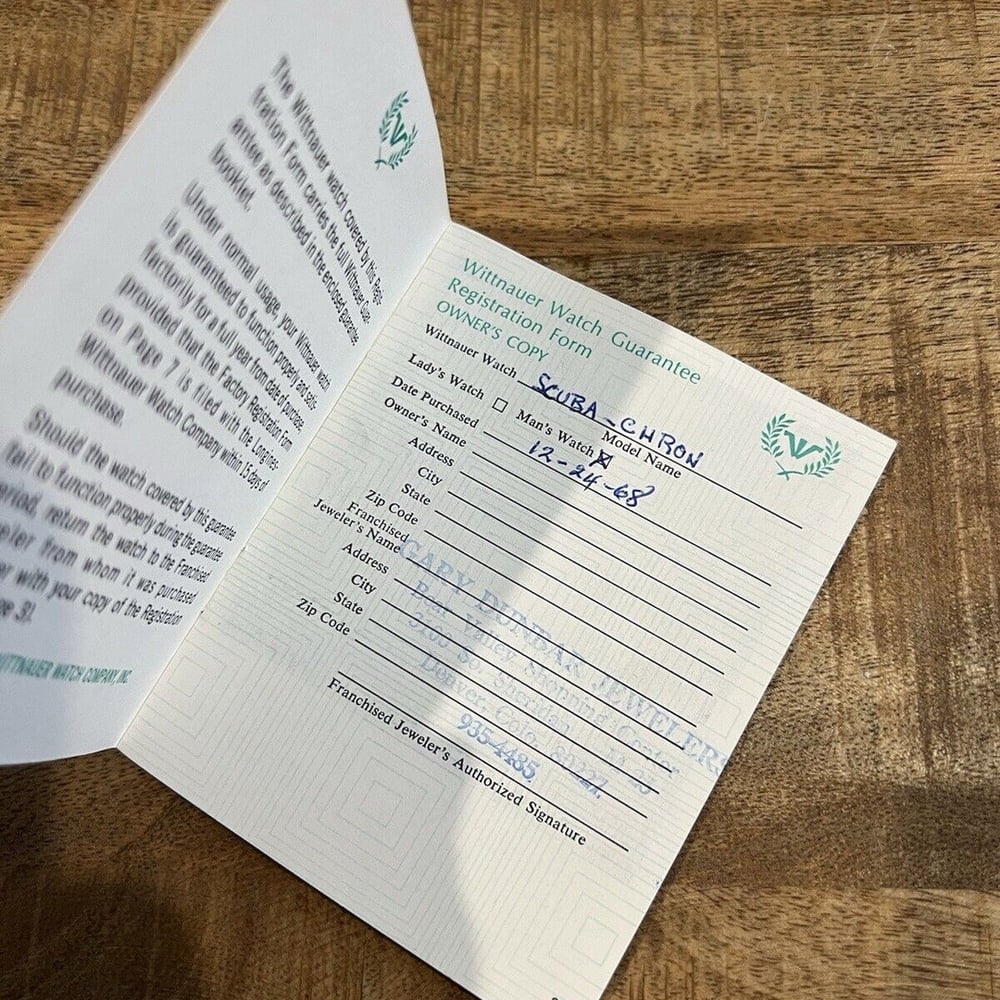 The Wittnauer watch covered by this Regis-
tration Form carries the full Wittnauer Guar-
antee as described in the enclosed guarantee
booklet.
Under normal usage, your Wittnauer watch
is guaranteed to function properly and satis-
factorily for a full year from date of purchase,
provided that the Factory Registration Form
on Page 7 is filed with the Longines-
Wittnauer Watch Company within 15 days of
purchase.
Should the watch covered by this guarantee
fail to function properly during the guarantee
period, return the watch to the Franchised
from whom it was purchased
with your copy of the Registration
3).
WITTNAUER WATCH COMPANY, INC.
Wittnauer Watch Guarantee
Registration Form
OWNER'S COPY
Wittnauer Watch SCUBA-CHRON
Model Name
Lady's Watch ☐ Man's Watch ☒
Date Purchased 12-24-68
Owner's Name
Address
City
State
Zip Code
Franchised
Jeweler's Name GARY DUNBAR JEWELERS
Address Bear Valley Shopping Center
City So. Sheridan
State Denver, Colo. 80227
Zip Code 935-4485
Franchised Jeweler's Authorized Signature